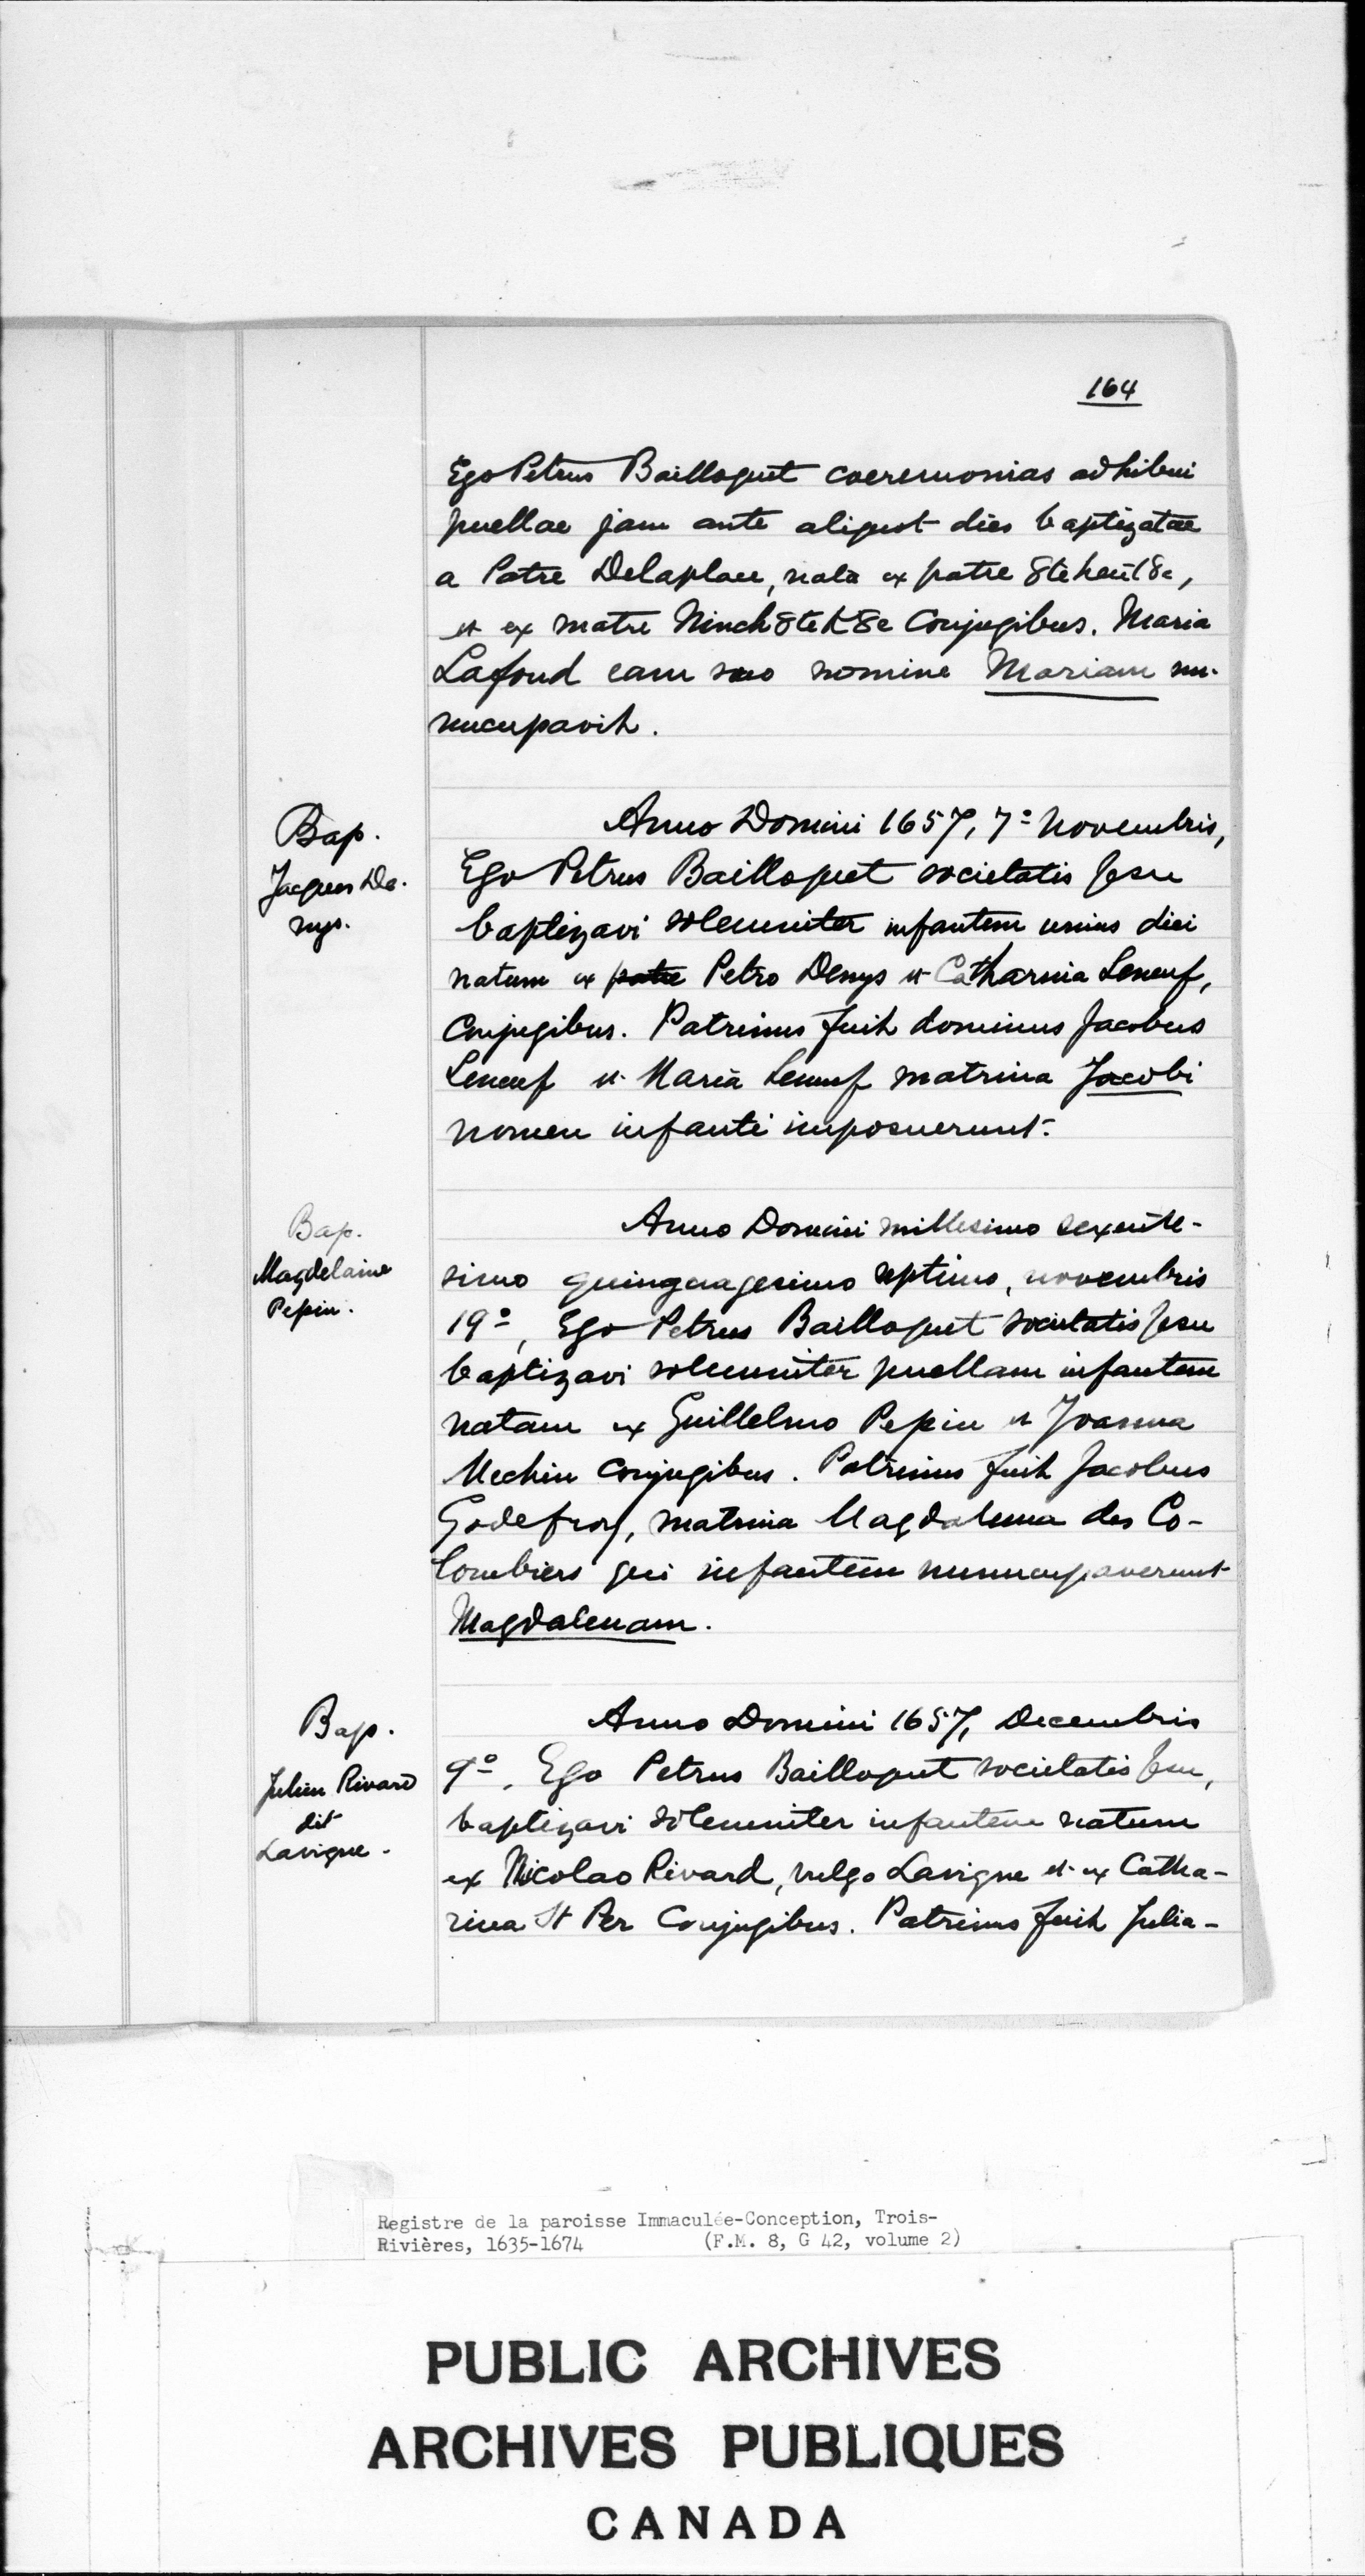 164
Ego Petrus Bailloquet coeremonias adhibui
puellae jam ante aliquot dies baptizatae
a Patre Delaplace, nata ex patre
et ex matre Conjugibus. Maria
Lafond eam suo nomine Mariam nu-
nucupavit.
Bap.
Jacques De-
nys.
Anno Domini 1657, 7º Novembris,
Ego Petrus Bailloquet societatis Jesu
baptizavi solemniter infantem unius diei
natum ex patre Petro Denys et Catharina Leneuf,
Conjugibus. Patrinus fuit dominus Jacobus
Leneuf et Maria Leneuf matrina Jacobi
nomen infanti imposuerunt.
Bap.
Magdelaine
Pepin.
Anno Domini millesimo sexente-
simo quinquagesimo septimo, novembris
19º, Ego Petrus Bailloquet societatis Jesu
baptizavi solemniter puellam infantem
natam ex Guillelmo Pepin et Joanna
Mechin Conjugibus. Patrinus fuit Jacobus
Godefroy, matrina Magdalena des Co-
lombiers qui infantem nunnupaverunt
Magdalenam.
Bap.
Julien Rivard
dit
Lavigne.
Anno Domini 1657, Decembris
9º, Ego Petrus Bailloquet societatis Jesu,
baptizavi solemniter infantem natum
ex Nicolao Rivard, vulgo Lavigne et ex Catha-
rina St Per Conjugibus. Patrinus fuit Julia-
Registre de la paroisse Immaculée-Conception, Trois-
Rivières, 1635-1674 (F.M. 8, G 42, volume 2)
PUBLIC ARCHIVES
ARCHIVES PUBLIQUES
CANADA